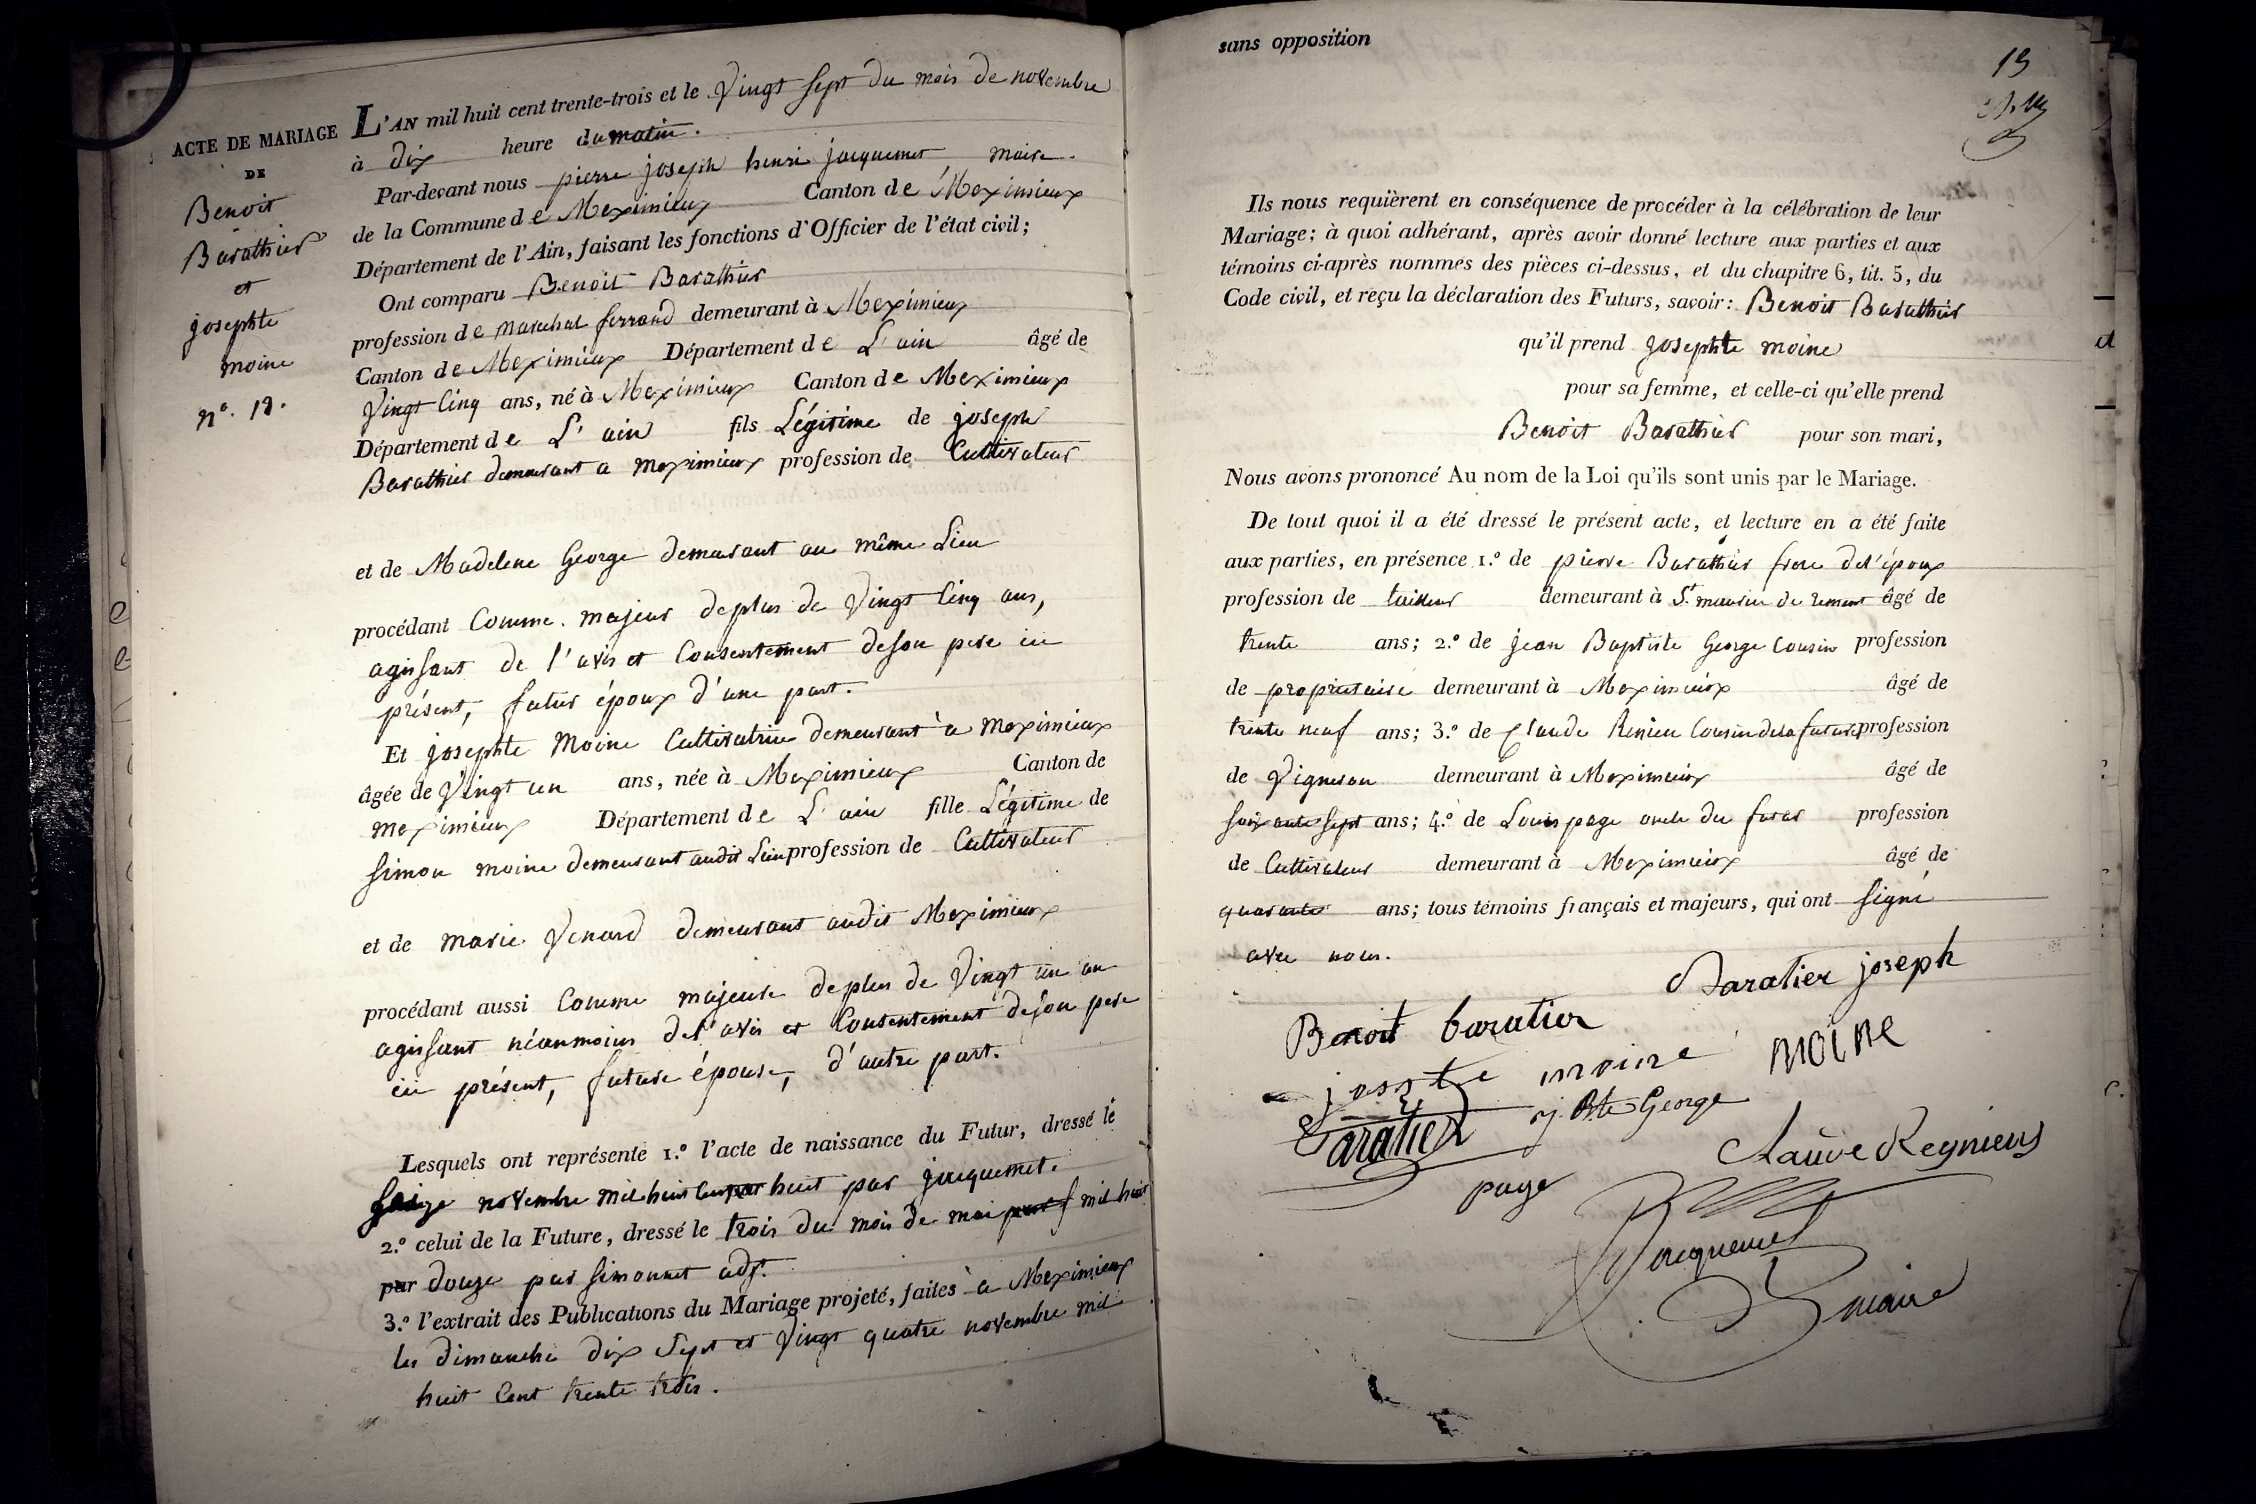 ACTE DE MARIAGE
DE
Benoit
Barathier
et
josephte
moine
n°. 18.
L'AN mil huit cent trente-trois et le Vingt Sept du mois de novembre
à dix heure du matin.
Par-devant nous pierre joseph henri jacquemet maire
de la Commune de Meximieux Canton de Meximieux
Département de l'Ain, faisant les fonctions d'Officier de l'état civil;
Ont comparu Benoit Barathier
profession de marechal ferrand demeurant à Meximieux
Canton de Meximieux Département de L'ain âgé de
Vingt Cinq ans, né à Meximieux Canton de Meximieux
Département de L'ain fils Légitime de joseph
Barathier demeurant a meximieux profession de Cultivateur
et de Madelene George demeurant au même Lieu
procédant Comme majeur deplus de Vingt Cinq ans,
agissant de l'avis et Consentement deson pere ici
présent, futur époux d'une part.
Et josephte Moine Cultivatrice demeurant à meximieux
âgée de Vingt un ans, née à Meximieux Canton de
meximieux Département de L'ain fille Légitime de
Simon moine demeurant audit Lieu profession de Cultivateur
et de marie Venard demeurant audit Meximieux
procédant aussi Comme majeure deplus de Vingt un an
agissant néanmoins del'avis et Consentement deson pere
ici présent, future épouse, d'autre part.
Lesquels ont représenté 1.° l'acte de naissance du Futur, dressé le
Seize novembre mil huit Cent huit par jacquemet.
2.° celui de la Future, dressé le trois du mois de mai mil huit
par douze par Simonnet adj.t
3.° l'extrait des Publications du Mariage projeté, faites à Meximieux
les dimanche dix Sept et Vingt quatre novembre mil
huit Cent trente trois.
sans opposition
19
Ils nous requièrent en conséquence de procéder à la célébration de leur
Mariage; à quoi adhérant, après avoir donné lecture aux parties et aux
témoins ci-après nommés des pièces ci-dessus, et du chapitre 6, tit. 5, du
Code civil, et reçu la déclaration des Futurs, savoir: Benoit Barathier
qu'il prend josephte moine
pour sa femme, et celle-ci qu'elle prend
Benoit Barathier pour son mari,
Nous avons prononcé Au nom de la Loi qu'ils sont unis par le Mariage.
De tout quoi il a été dressé le présent acte, et lecture en a été faite
aux parties, en présence 1.° de pierre Barathier frere del'époux
profession de tailleur demeurant à St. maurice de remens âgé de
trente ans; 2.° de jean Baptiste George Cousin profession
de propriétaire demeurant à Meximieux âgé de
trente neuf ans; 3.° de Claude Renieu Cousin dela future profession
de Vigneron demeurant à Meximieux âgé de
Soixante Sept ans; 4.° de Louis page oncle du futur profession
de Cultivateur demeurant à Meximieux âgé de
quarante ans; tous témoins français et majeurs, qui ont Signé
avec nous.
Baratier joseph
Benoit baratier
moine MOINE
j Bte George
Baratier
Claude Regnieus
page
Jacquemet
maire